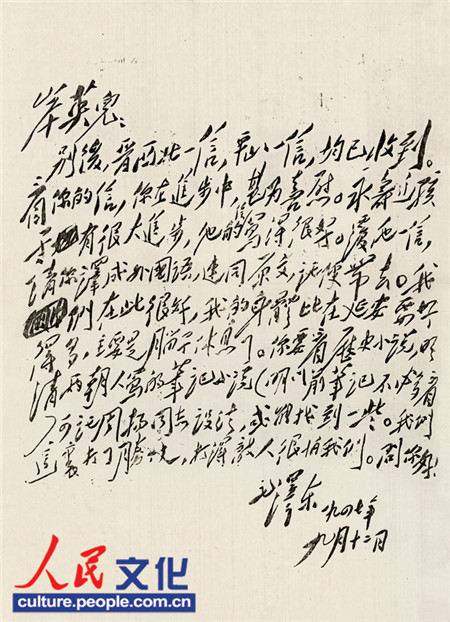 岸英兒:
別後,晉西北一信,平山一信,均已收到。
看你的信,你在進步中,甚為喜慰。永壽這孩
子有很大進步,他的信寫得很好。復他一信,
請你譯成外國語,連同原文,託便帶去。我
們在此很好,我的身體比在延安要好
得多,主要是腦子休息了。你要看歷史小說,明
清兩朝人寫的筆記小說(明以前筆記不必多看)
可託周揚同志設法,或能找到一些。我們
這裏打了勝仗,打得敵人很怕我們。問你好!
毛澤東
一九四七年
九月十二日
人民文化
culture.people.com.cn